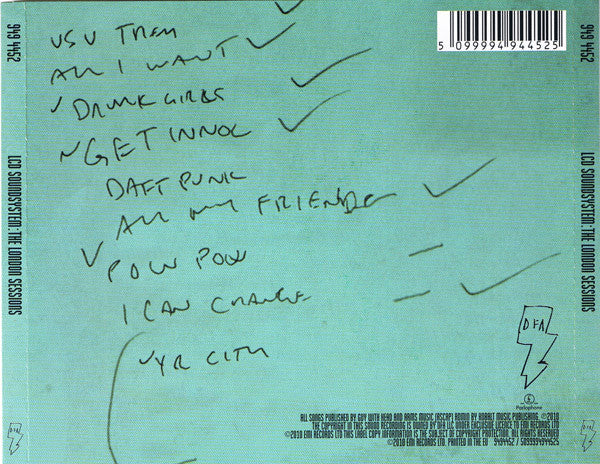 949 4452
LCD SOUNDSYSTEM: THE LONDON SESSIONS
DFA
USV THEM
ALL I WANT
DRUNK GIRLS
GET INNOC
DAFT PUNK
ALL MY FRIENDS
POW POW
I CAN CHANGE
YR CITY
5 099994 944525
949 4452
LCD SOUNDSYSTEM: THE LONDON SESSIONS
DFA
DFA
Parlophone
ALL SONGS PUBLISHED BY GUY WITH HEAD AND ARMS MUSIC (ASCAP) ADMIN BY KOBALT MUSIC PUBLISHING. ℗2010
THE COPYRIGHT IN THIS SOUND RECORDING IS OWNED BY DFA LLC UNDER EXCLUSIVE LICENCE TO EMI RECORDS LTD
©2010 EMI RECORDS LTD THIS LABEL COPY INFORMATION IS THE SUBJECT OF COPYRIGHT PROTECTION. ALL RIGHTS RESERVED
©2010 EMI RECORDS LTD. PRINTED IN THE EU 9494452 / 5099994944525